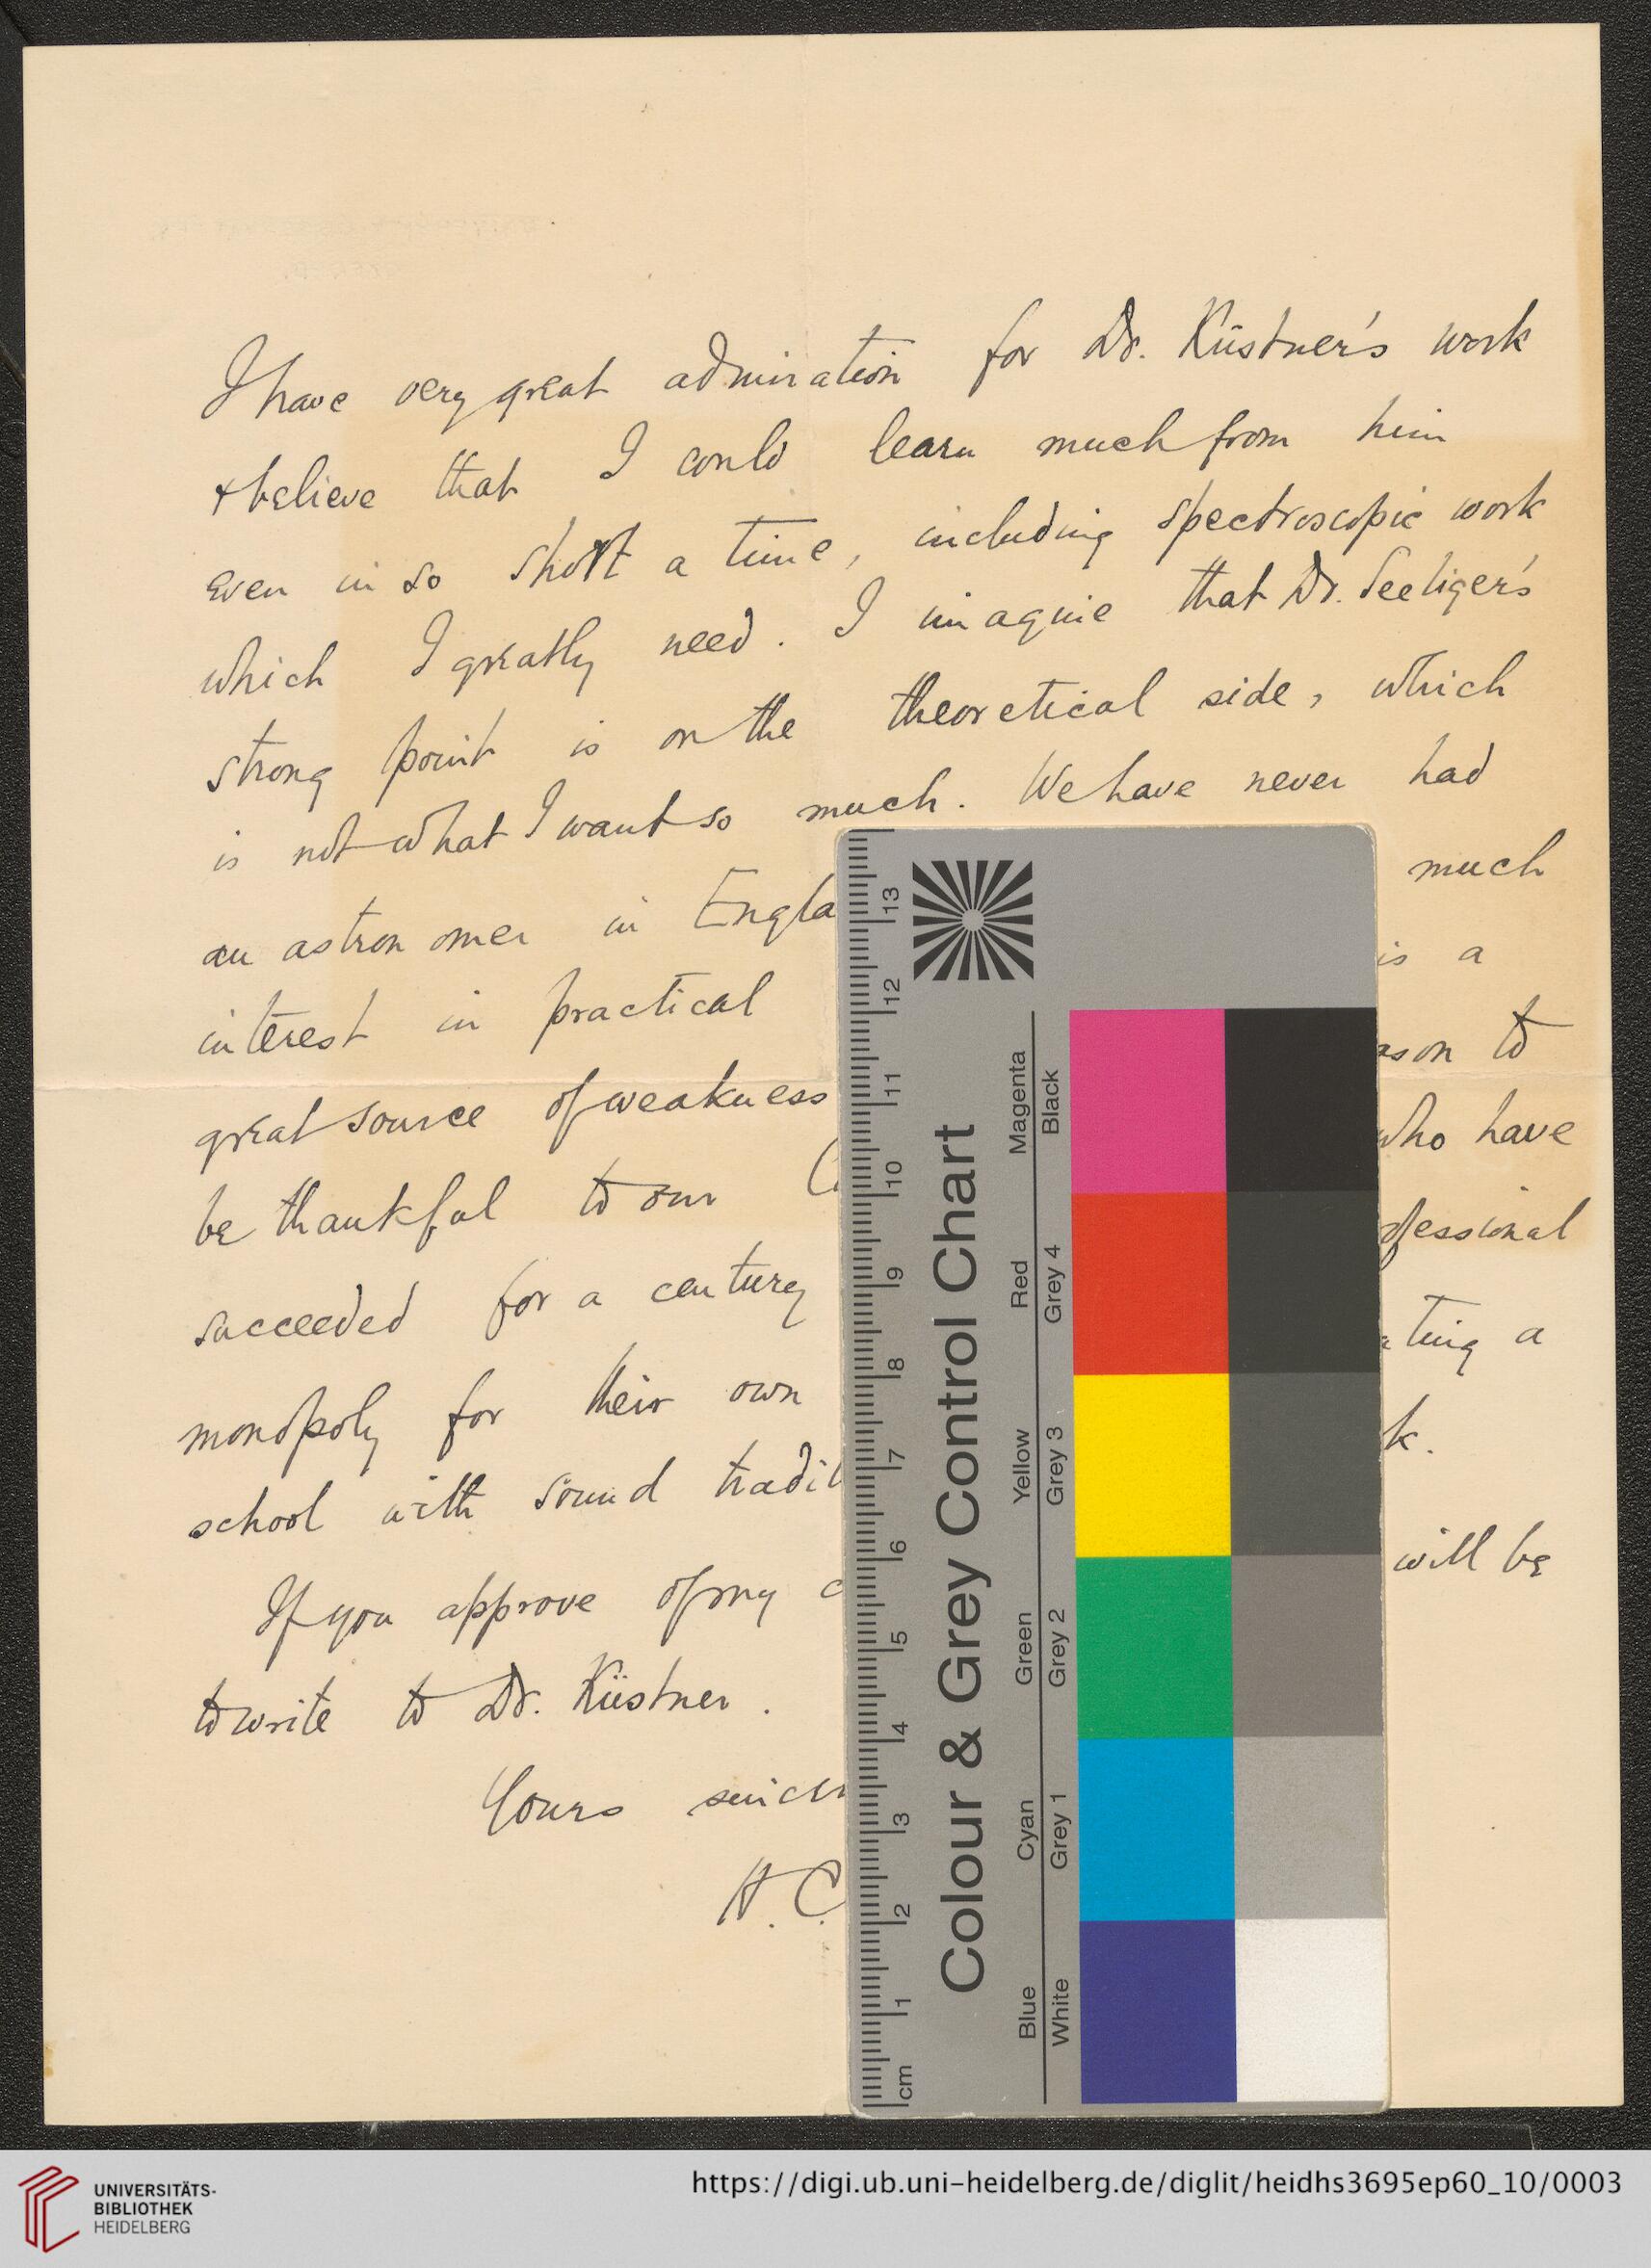 I have very great admiration for Dr. Küstner's work
+ believe that I could learn much from him
even in so short a time, including spectroscopic work
which I greatly need. I imagine that Dr. Seeliger's
strong point is on the theoretical side, which
is not what I want so much. We have never had
an astronomer in Engla much
interest in practical is a
great source of weakness ason to
be thankful to our who have
succeeded for a century ofessional
monopoly for their own ting a
school with sound tradit k.
If you approve of my will be
to write to Dr. Küstner.
Yours sincer
H. C.
13
12
11
10
9
8
7
6
5
4
3
2
1
cm
Colour & Grey Control Chart
Magenta
Black
Red
Grey 4
Yellow
Grey 3
Green
Grey 2
Cyan
Grey 1
Blue
White
UNIVERSITÄTS-
BIBLIOTHEK
HEIDELBERG
https://digi.ub.uni-heidelberg.de/diglit/heidhs3695ep60_10/0003